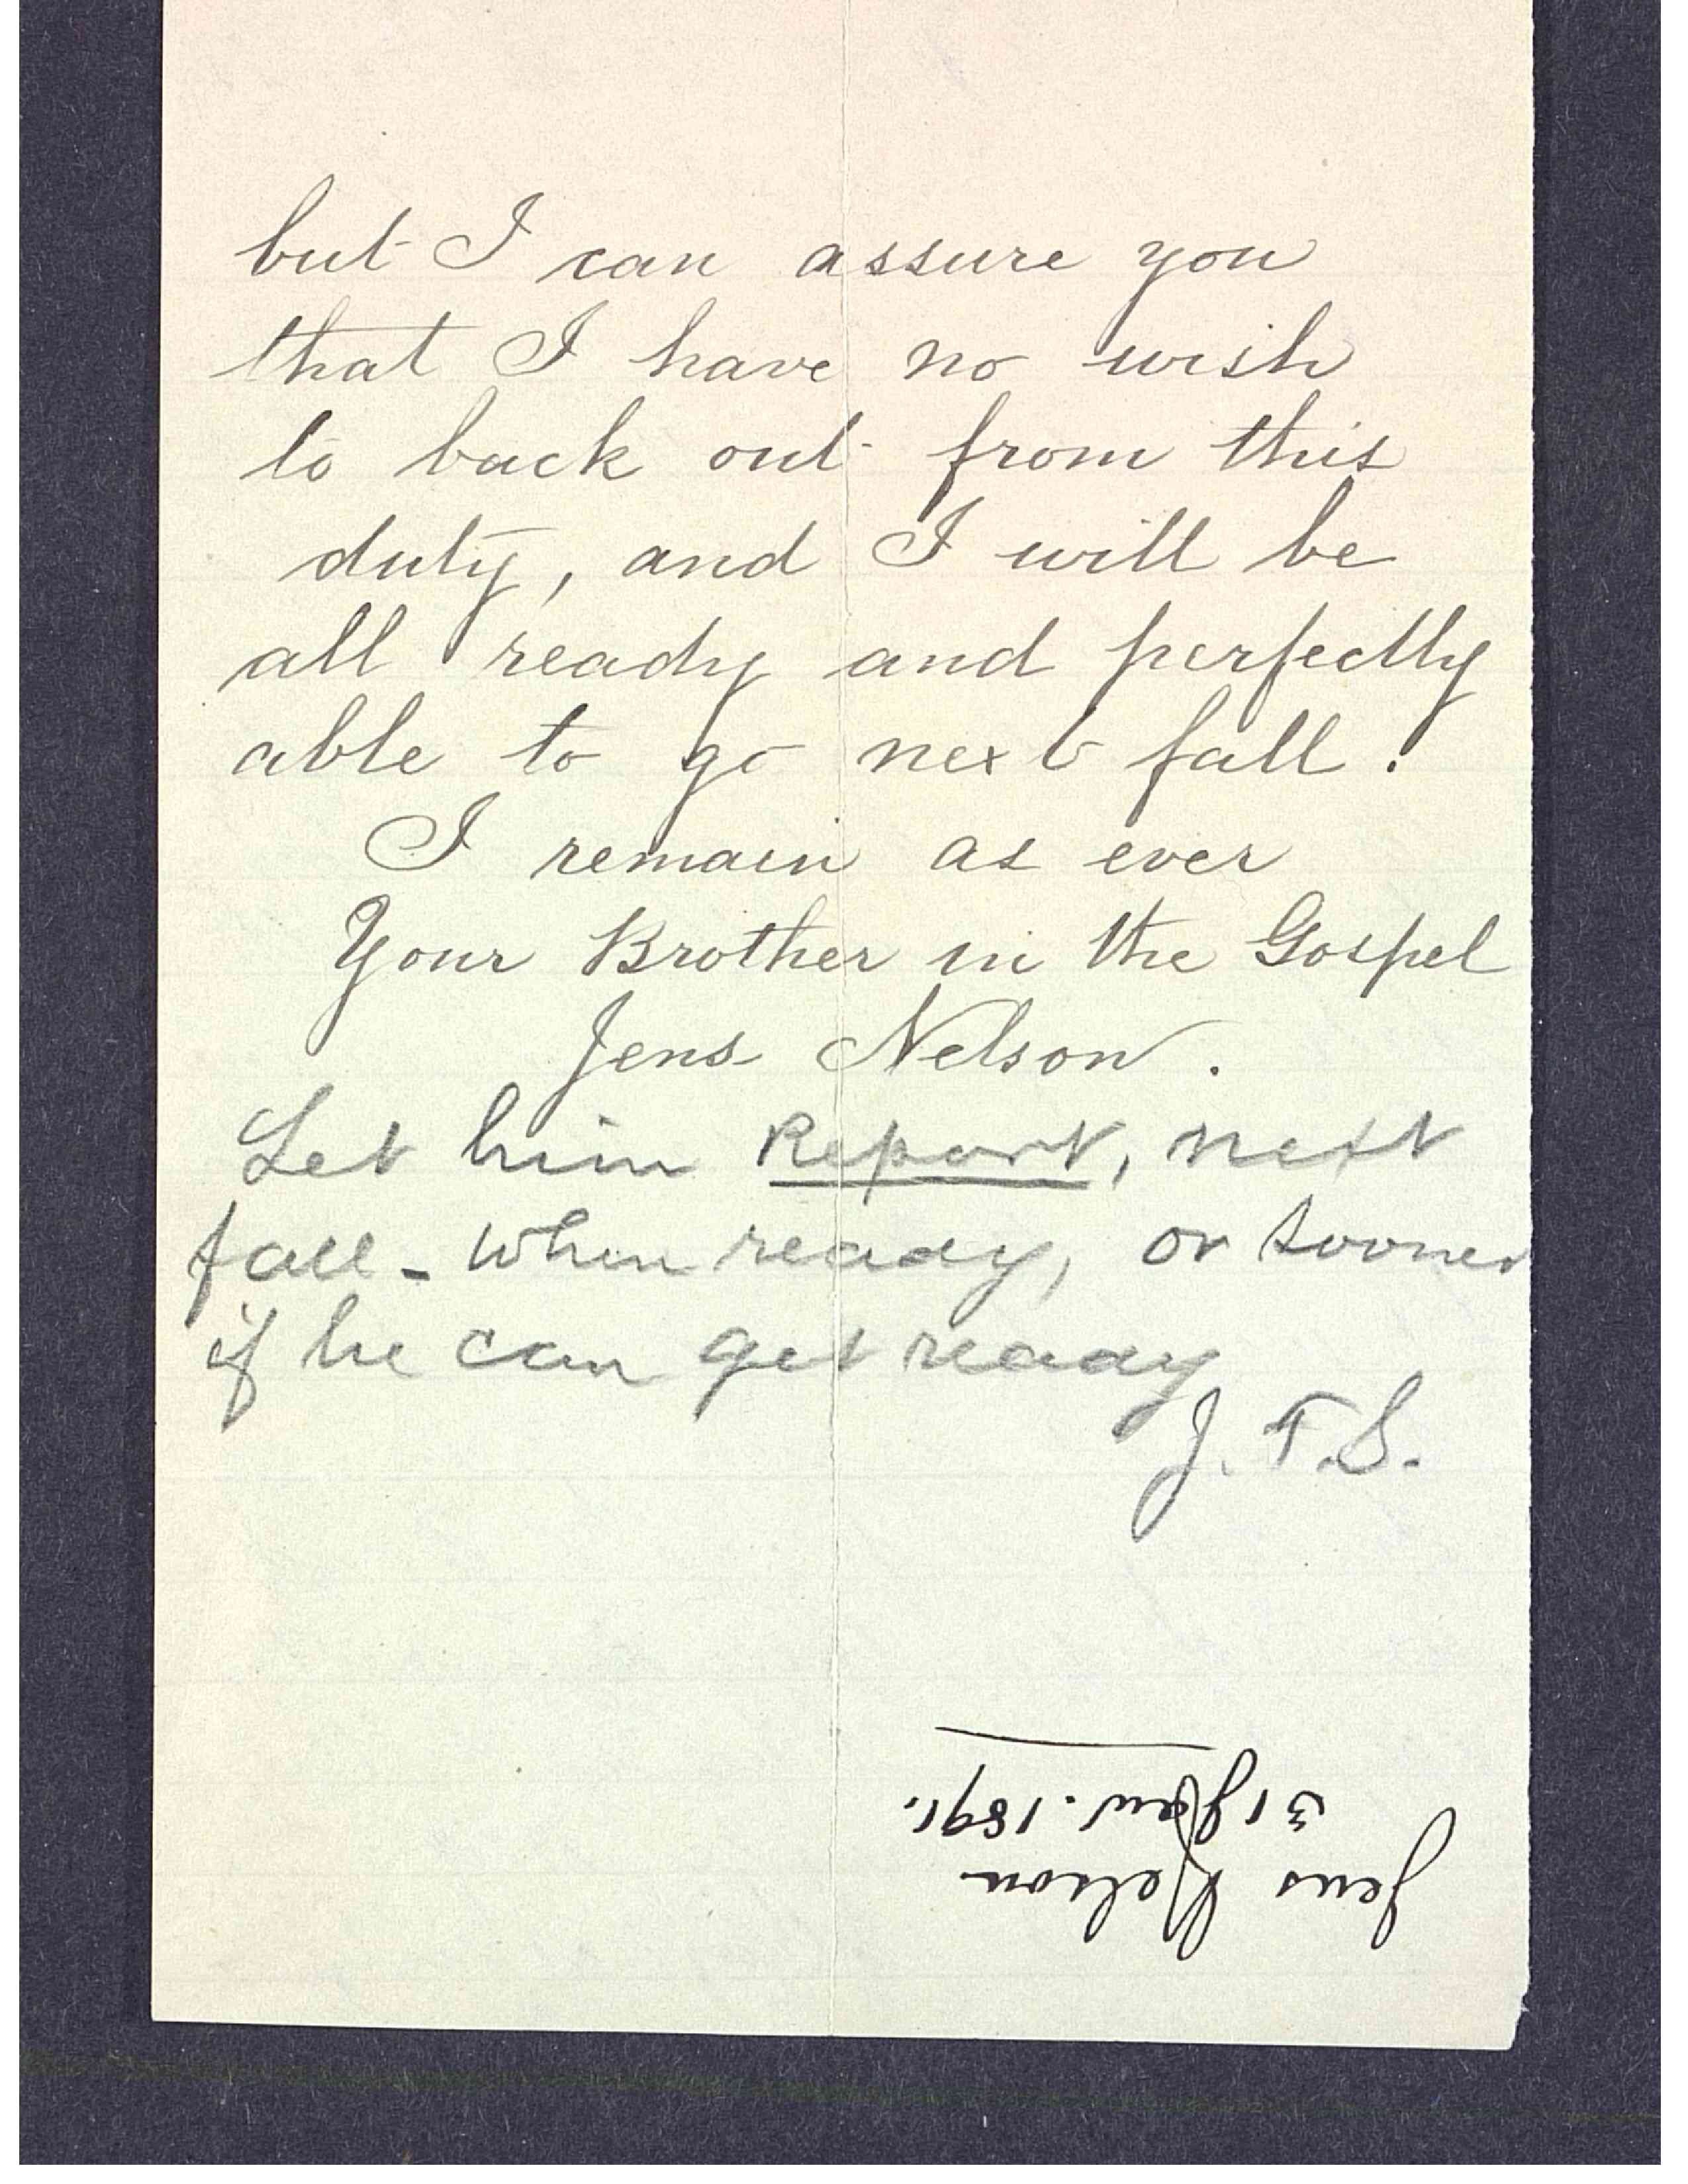 but I can assure you
that I have no wish
to back out from this
duty, and I will be
all ready and perfectly
able to go next fall.
I remain as ever
Your Brother in the Gospel
Jens Nelson.
Let him Report, next
fall - when ready, or sooner
if he can get ready
J. F. S.
Jens Nelson
31 Jan. 1891.